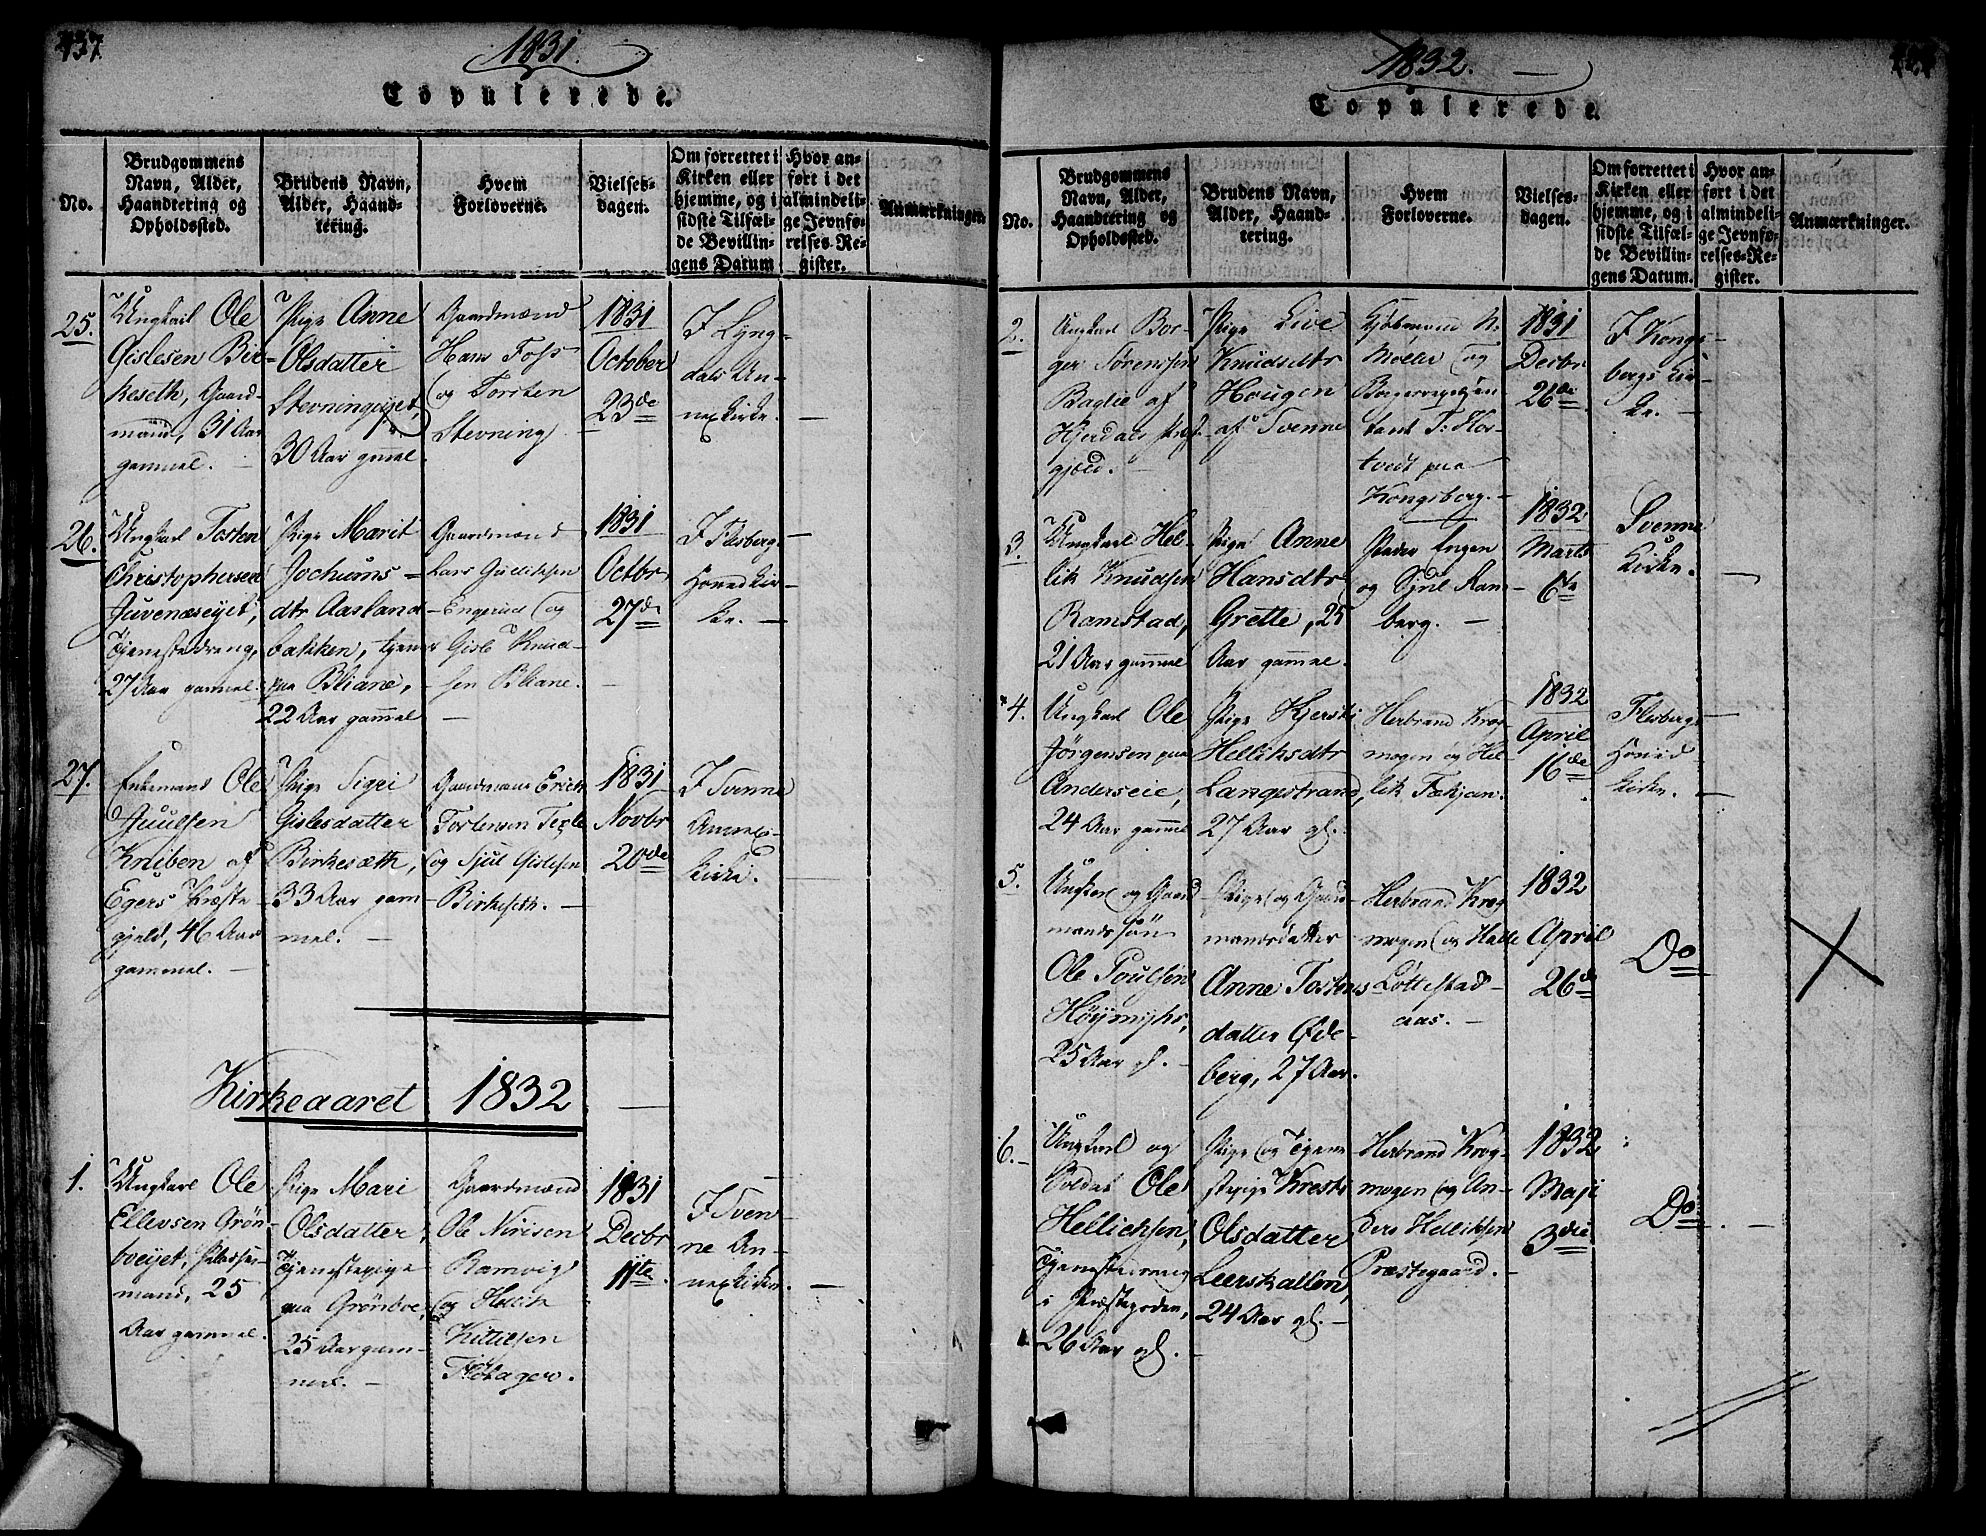 437.
1831.
Copulerede.
No.
Brudgommens
Navn, Alder,
Haandtering og
Opholdssted.
Brudens Navn,
Alder, Haand-
tering.
Hvem
Forloverne.
Vielses-
dagen.
Om forrettet i
Kirken eller
hjemme, og i
sidste Tilfæl-
de Bevillin-
gens Datum
Hvor an-
ført i det
almindeli-
ge Jevnfø-
relses-Re-
gister.
Anmærkninger.
25.
Ungkarl Ole
Gislesen Bir-
keseth, Gaard-
mand, 31 Aar
gammel.
Pige Anne
Olsdatter
Stevningeiet,
30 Aar gmel.
Gaardmænd
Hans Foss
og Torsten
Stevning
1831
October
23de
I Lyng-
dals An-
nexkirke. —
26.
Ungkarl Tosten
Christophersen
Juvenæseiet,
Tjenestedreng,
27 Aar gammel.
Pige Marit
Jochums-
dtr Aasland-
bakken, tjener
paa Bliane,
22 Aar gammel
Gaardmænd
Lars Gulliksen
Engerud og
Gisle Knud-
sen Bliane. —
1831
Octbr
27de
I Flesberg
Hovedkir-
ke. —
27.
Enkemand Ole
Juulsen
Kniben af
Egers Præste
gjeld, 46 Aar
gammel. —
Pige Sigri
Gislesdatter
Birkesæth,
33 Aar gam-
mel. —
Gaardmænd Erich
Torstensen
og Sjul Gislesen
Birkeseth. —
1831
Novbr
20de
I Svenne
Annex
Kirke. —
Kirkeaaret 1832 —
1.
Ungkarl Ole
Ellevsen Grøn-
boeiet, Pladse-
mand, 25
Aar gammel.
Pige Mari
Olsdatter,
Tjenestepige
paa Grønboe,
25 Aar gam-
mel. —
Gaardmænd
Ole Nirisen
Ramvig
og Hellik
Kittilsen
Fløtager.
1831
Decbr
11te
I Sven-
ne An-
nexkirke. —
1832. —
Copulerede.
No.
Brudgommens
Navn, Alder,
Haandtering og
Opholdssted.
Brudens Navn,
Alder, Haand-
tering.
Hvem
Forloverne.
Vielses-
dagen.
Om forrettet i
Kirken eller
hjemme, og i
sidste Tilfæl-
de Bevillin-
gens Datum.
Hvor an-
ført i det
almindeli-
ge Jevnfø-
relses-Re-
gister.
Anmærkninger.
2.
Ungkarl Bor-
ger Sørensen
Baglie af
Hjerdals Præst-
gjeld. —
Pige Live
Knudsdtr
Hougen
af Svenne
Kjøbmand N.
Møller og
Borgerrepræsen
tant T: Kor-
tvedt paa
Kongsberg. —
1831
Decbr
26de
I Kongs-
bergs Kir-
ke. —
3.
Ungkarl Hel-
lik Knudsen
Ramstad,
21 Aar gammel
Pige Anne
Hansdtr
Grette, 25
Aar gammel.
Peder Engen
og Sjul Ram-
berg. —
1832
Marts
6te
Svenne
Kirke. —
4.
Ungkarl Ole
Jørgensen paa
Anderseie,
24 Aar gammel
Pige Kjersti
Helliksdtr
Langestrand,
27 Aar gl.
Herbrand Krog-
mogen og Hel-
lik Tækjan.
1832
April
16de
Flesbergs
Hoved
kirke. —
5.
Ungkarl og Gaard
mands søn
Ole Poulsen
Høymyhr,
25 Aar gl. —
Pige og Gaard
mandsdatter
Anne Tostens
datter Øde-
berg, 27 Aar.
Herbrand Krog
mogen og Halle
Løttestad-
aas. —
1832
April
26de
Do
6. —
Ungkarl og
Soldat Ole
Hellichsen,
Tjenestedreng
i Præstegarden,
26 Aar gl. —
Pige og Tjene
stepige Kresti
Olsdatter
Leerskallen,
24 Aar gl. —
Herbrand Krog-
mogen og An-
ders Helliksen
Præstegaard. —
1832
Maji
3die
Do. —